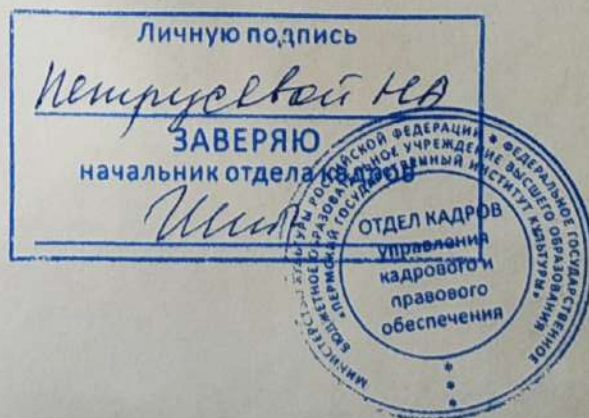 Личную подпись
Петрусевой НА
ЗАВЕРЯЮ
начальник отдела кадров
МИНИСТЕРСТВО КУЛЬТУРЫ РОССИЙСКОЙ ФЕДЕРАЦИИ * ФЕДЕРАЛЬНОЕ ГОСУДАРСТВЕННОЕ
БЮДЖЕТНОЕ ОБРАЗОВАТЕЛЬНОЕ УЧРЕЖДЕНИЕ ВЫСШЕГО ОБРАЗОВАНИЯ
«ПЕРМСКИЙ ГОСУДАРСТВЕННЫЙ ИНСТИТУТ КУЛЬТУРЫ»
ОТДЕЛ КАДРОВ
управления
кадрового и
правового
обеспечения
* * *